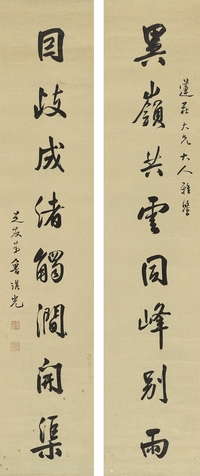 蓮莊大兄大人雅鑒
異嶺共雲同峰別雨
囙歧成渚觸澗開渠
芝友弟魯琪光